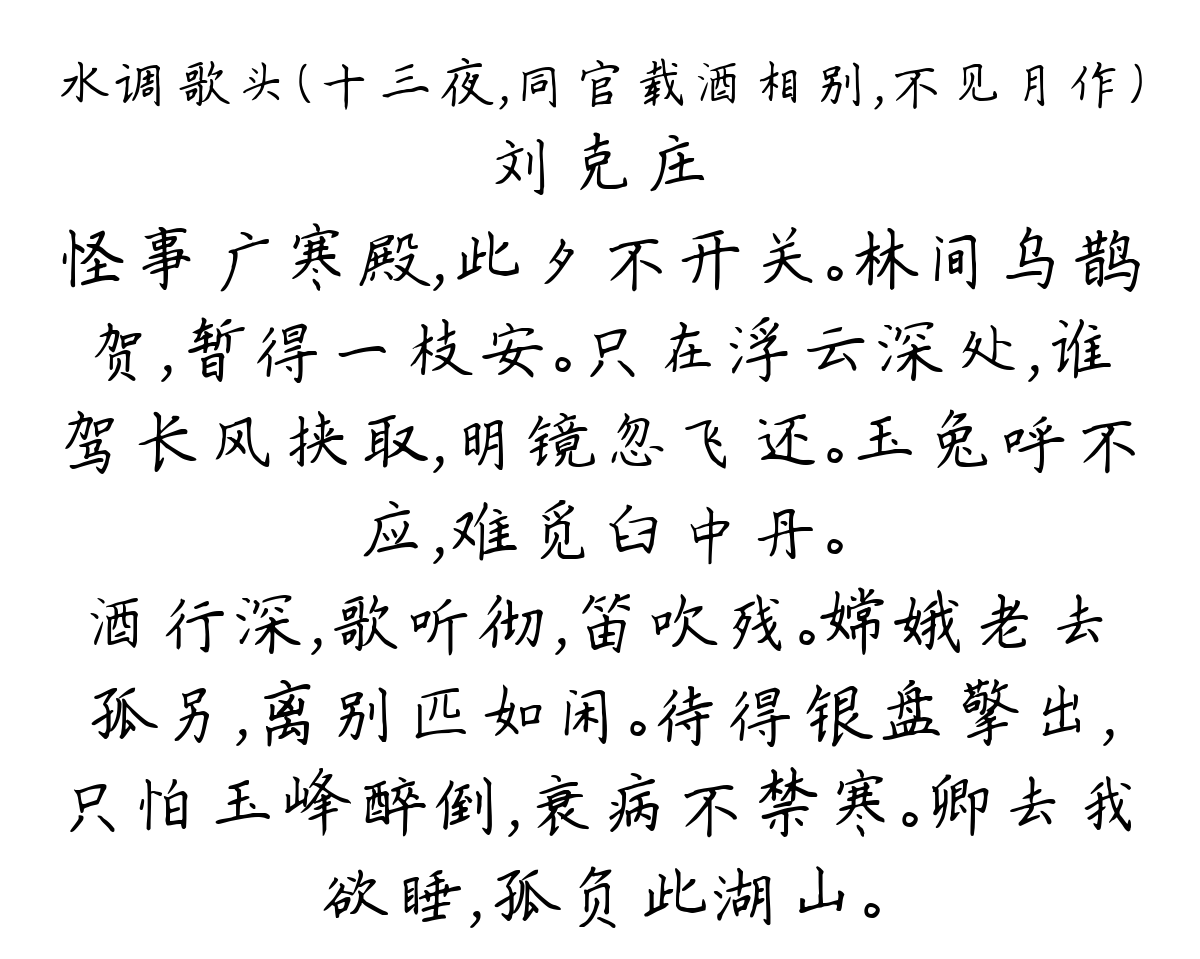 水调歌头(十三夜,同官载酒相别,不见月作)
刘克庄
怪事广寒殿,此夕不开关。林间乌鹊
贺,暂得一枝安。只在浮云深处,谁
驾长风挟取,明镜忽飞还。玉兔呼不
应,难觅臼中丹。
酒行深,歌听彻,笛吹残。嫦娥老去
孤另,离别匹如闲。待得银盘擎出,
只怕玉峰醉倒,衰病不禁寒。卿去我
欲睡,孤负此湖山。